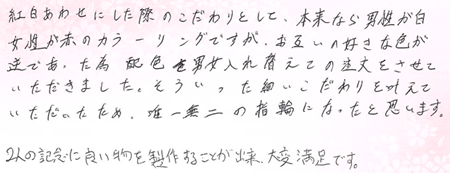 紅白あわせにした際のこだわりとして、本来なら男性が白
女性が赤のカラーリングですが、お互いの好きな色が
逆であった為 配色を男女入れ替えての注文をさせて
いただきました。そういった細いこだわりを叶えて
いただいたため、唯一無二の指輪になったと思います。
2人の記念に良い物を製作することが出来、大変満足です。